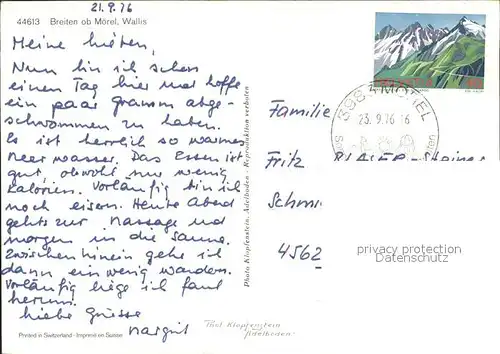 21.9.76
44613 Breiten ob Mörel, Wallis
Meine Lieben,
Nun bin ich schon
einen Tag hier und hoffe
ein paar Gramm abge-
schwommen zu haben.
Es ist herrlich so warmes
Meerwasser. Das Essen ist
gut, obwohl nur wenig
Kalorien. Vorläufig bin ich
noch eisern. Heute Abend
gehts zur Massage und
morgen in die Sauna.
Zwischen hinein gehe ich
dann ein wenig wandern.
Vorläufig liege ich faul
herum.
Liebe Grüsse
Margrit
Printed in Switzerland - Imprimé en Suisse
Photo Klopfenstein, Adelboden - Reproduktion verboten
Phot Klopfenstein
Adelboden
HELVETIA
3983 MÖREL
23.9.76 - 16
Familie
Fritz
Schmi
4562
privacy protection
Datenschutz